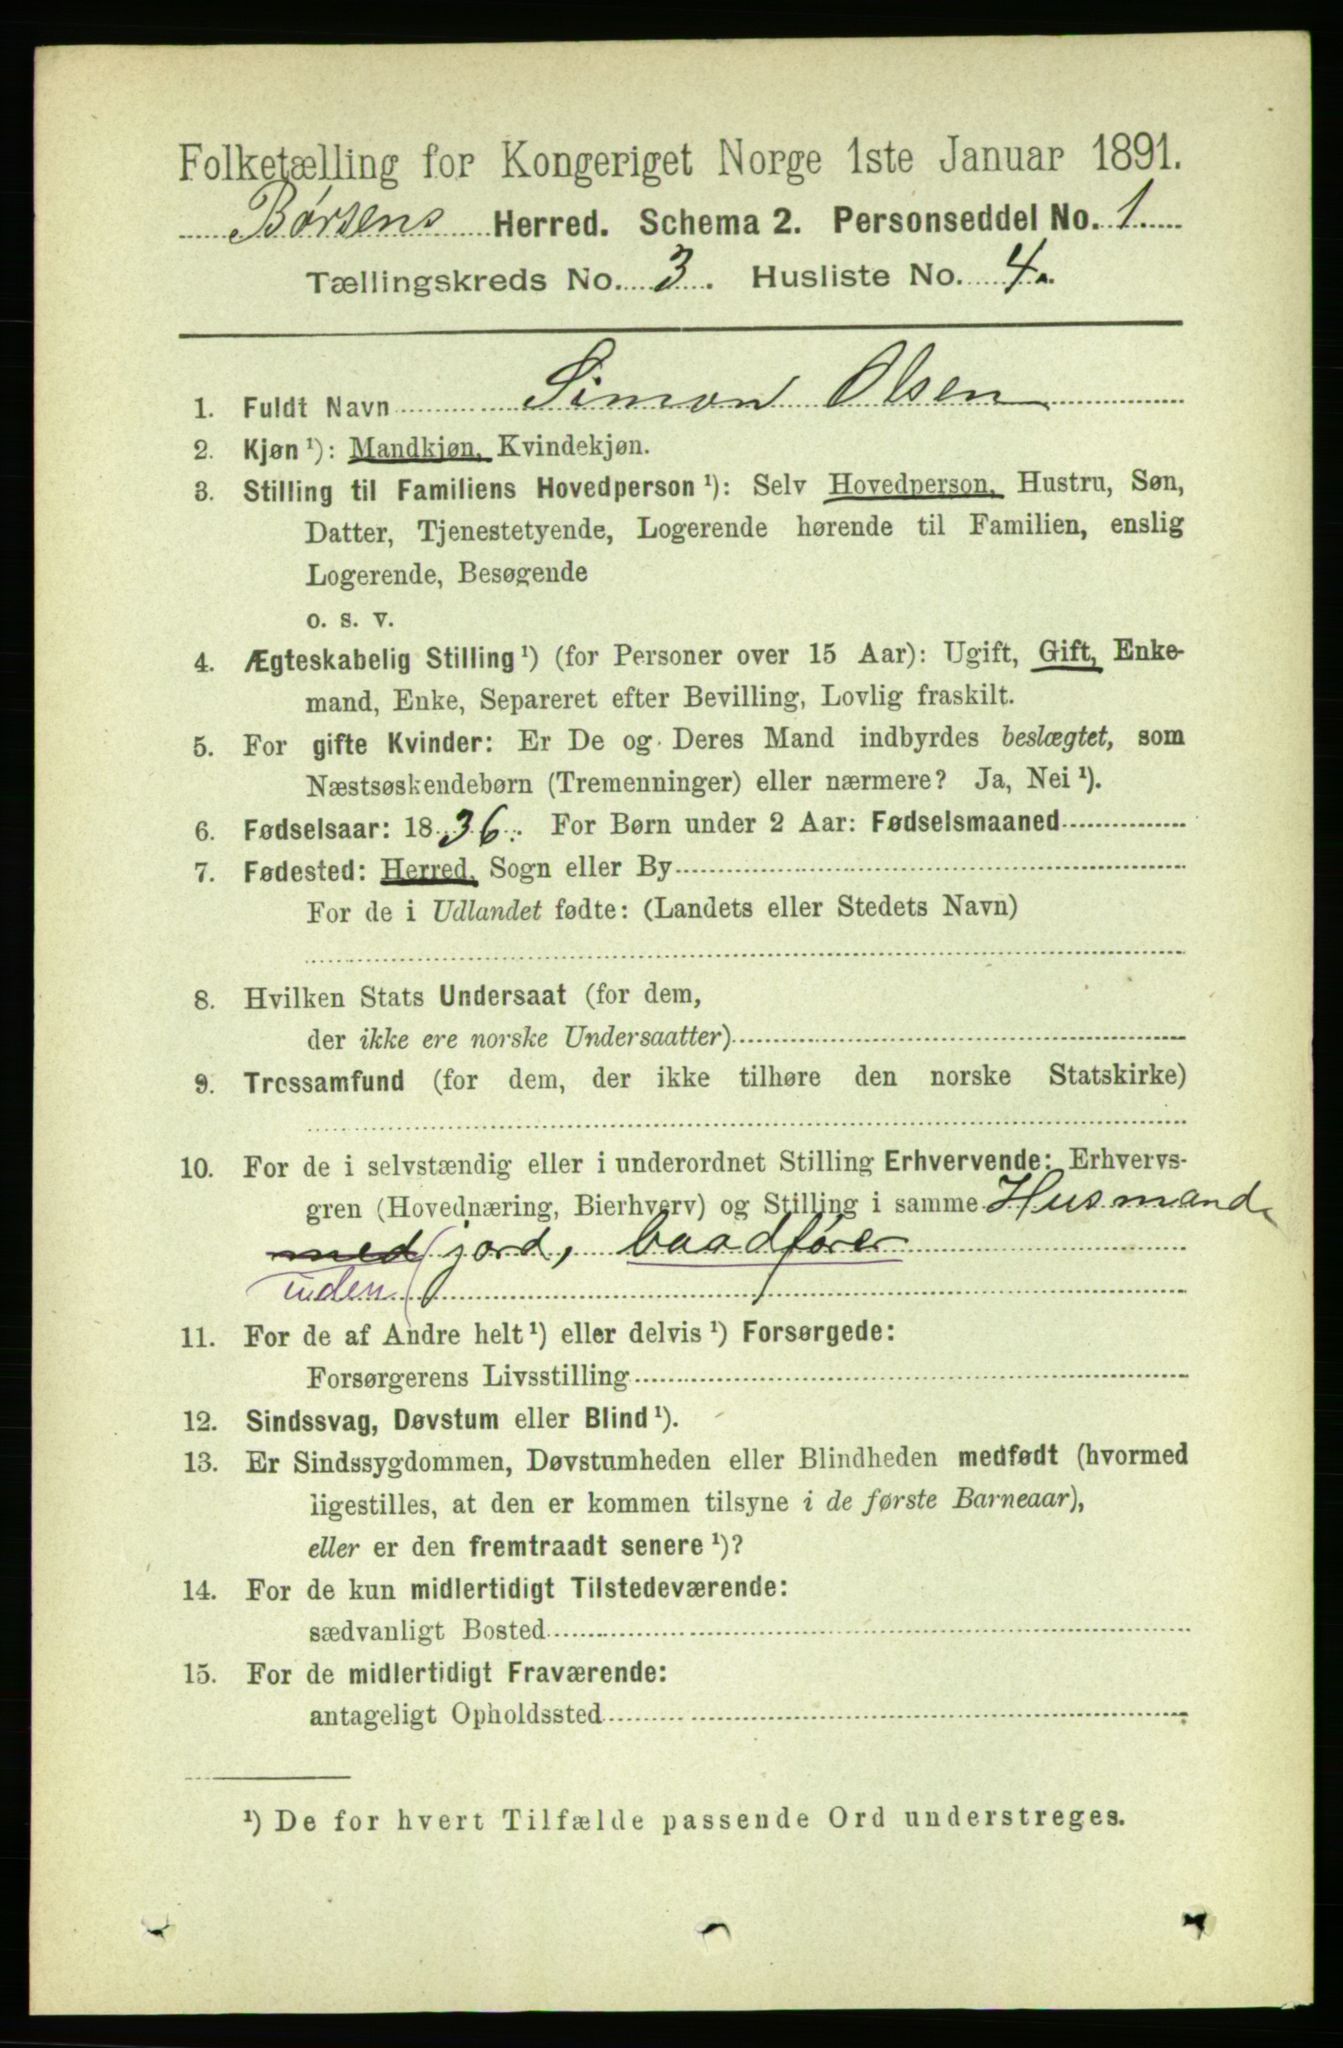 Folketælling for Kongeriget Norge 1ste Januar 1891.
Børsens Herred. Schema 2. Personseddel No. 1
Tællingskreds No. 3. Husliste No. 4.
1. Fuldt Navn Simon Olsen
2. Kjøn ¹): Mandkjøn, Kvindekjøn.
3. Stilling til Familiens Hovedperson ¹): Selv Hovedperson, Hustru, Søn,
Datter, Tjenestetyende, Logerende hørende til Familien, enslig
Logerende, Besøgende
o. s. v.
4. Ægteskabelig Stilling ¹) (for Personer over 15 Aar): Ugift, Gift, Enke-
mand, Enke, Separeret efter Bevilling, Lovlig fraskilt.
5. For gifte Kvinder: Er De og Deres Mand indbyrdes beslægtet, som
Næstsøskendebørn (Tremenninger) eller nærmere? Ja, Nei ¹).
6. Fødselsaar: 1836. For Børn under 2 Aar: Fødselsmaaned
7. Fødested: Herred, Sogn eller By
For de i Udlandet fødte: (Landets eller Stedets Navn)
8. Hvilken Stats Undersaat (for dem,
der ikke ere norske Undersaatter)
9. Trossamfund (for dem, der ikke tilhøre den norske Statskirke)
10. For de i selvstændig eller i underordnet Stilling Erhvervende: Erhvervs-
gren (Hovednæring, Bierhverv) og Stilling i samme Husmand
med jord, baadfører
uden
11. For de af Andre helt ¹) eller delvis ¹) Forsørgede:
Forsørgerens Livsstilling
12. Sindssvag, Døvstum eller Blind ¹).
13. Er Sindssygdommen, Døvstumheden eller Blindheden medfødt (hvormed
ligestilles, at den er kommen tilsyne i de første Barneaar),
eller er den fremtraadt senere ¹)?
14. For de kun midlertidigt Tilstedeværende:
sædvanligt Bosted
15. For de midlertidigt Fraværende:
antageligt Opholdssted
¹) De for hvert Tilfælde passende Ord understreges.